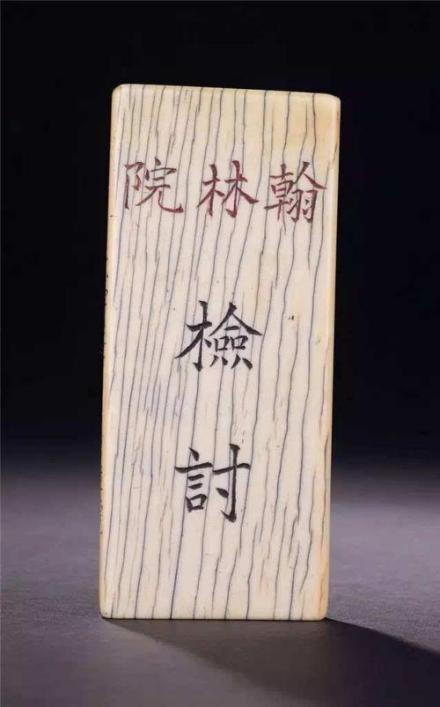 翰林院
檢討